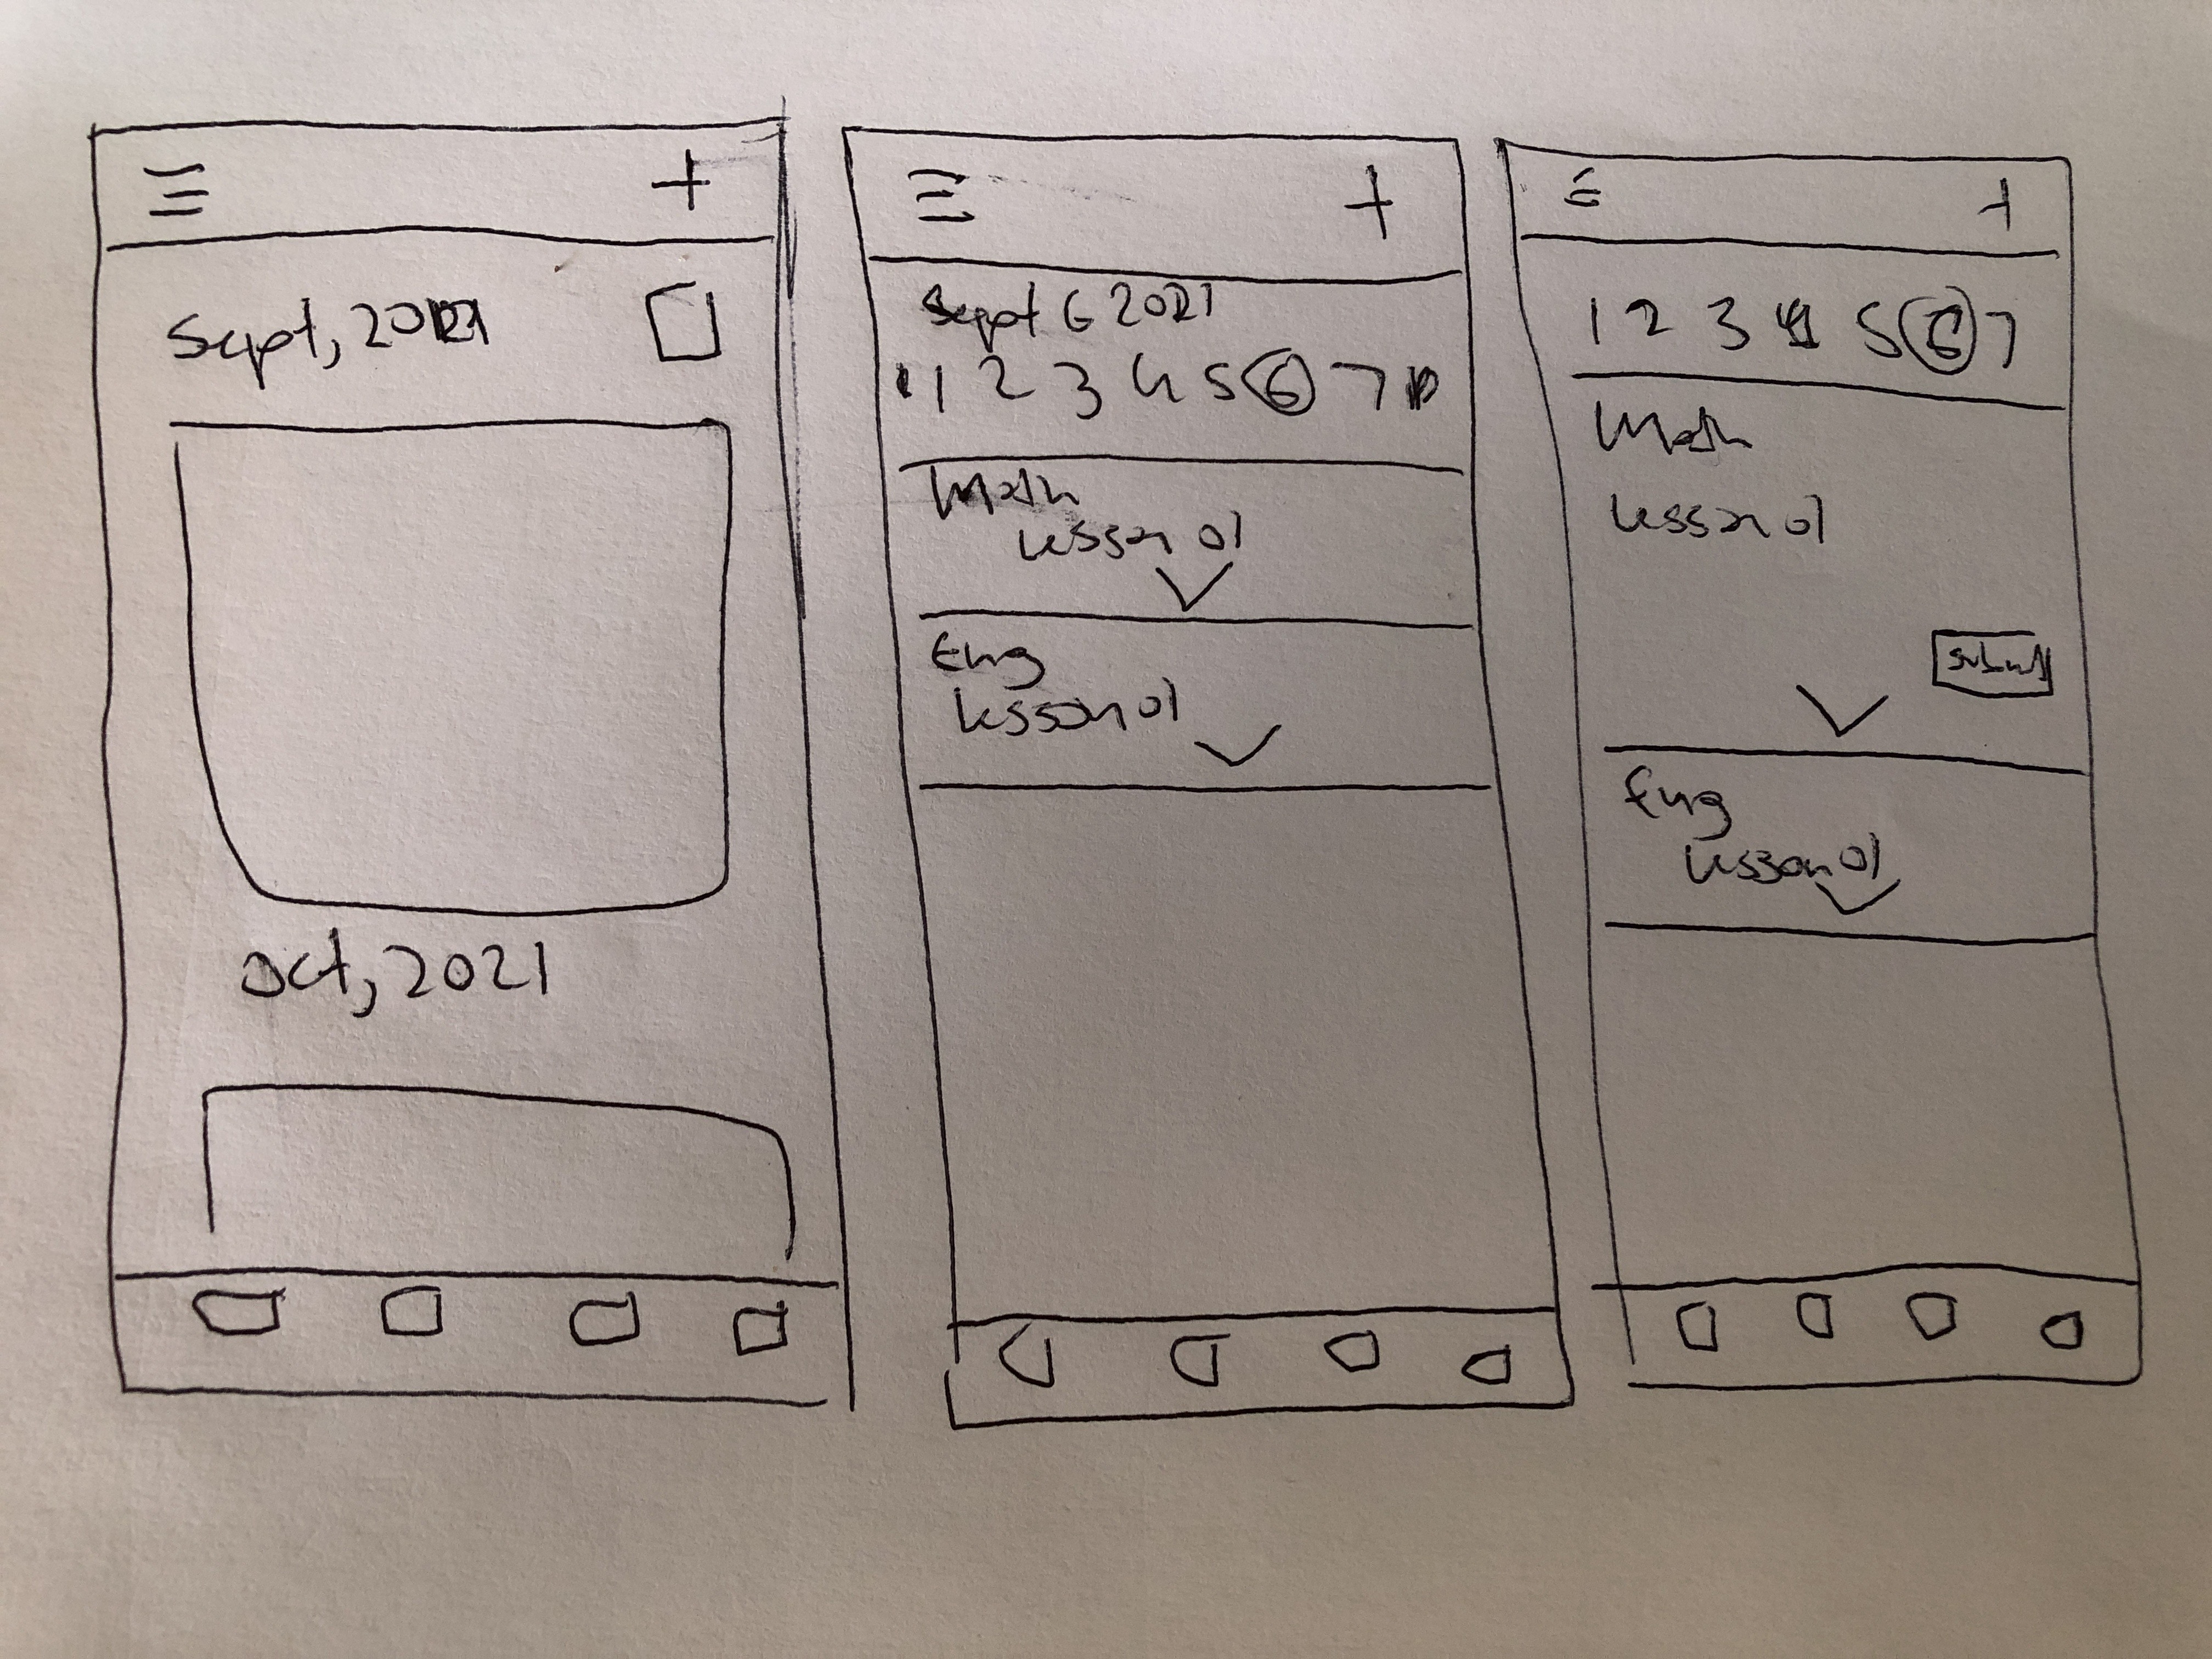 Sept, 2021
Oct, 2021
Sept 6 2021
1 2 3 4 5 6 7
Math
Lesson 01
Eng
Lesson 01
1 2 3 4 5 6 7
Math
Lesson 01
Submit
Eng
Lesson 01